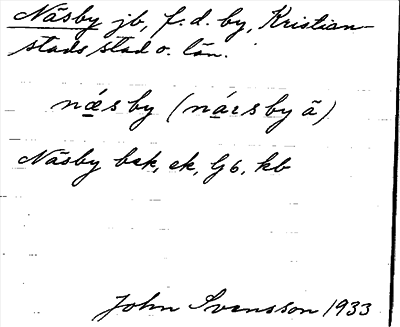 Näsby jb, f. d. by, Kristian-
stads stad o. län.
næsby (náesby ä)
Näsby bsk, ek, G6, kb
John Svensson 1933